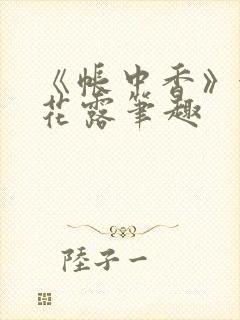 《帐中香》
花露笔趣
陸子一